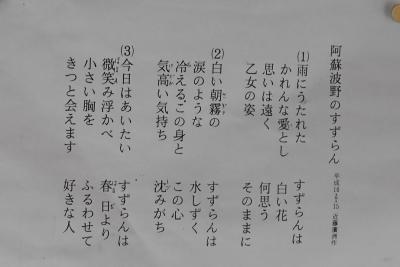 阿蘇波野のすずらん
平成16.4.15 近藤
(1)雨にうたれた すずらんは
かれんな愛とし 白い花
思いは遠く 何思う
乙女の姿 そのままに
(2)白い朝霧の すずらんは
涙のような 水しずく
冷える、この身と この心
気高い気持ち 沈みがち
(3)今日はあいたい すずらんは
微笑み浮かべ 春日より
小さい胸を ふるわせて
きつと会えます 好きな人